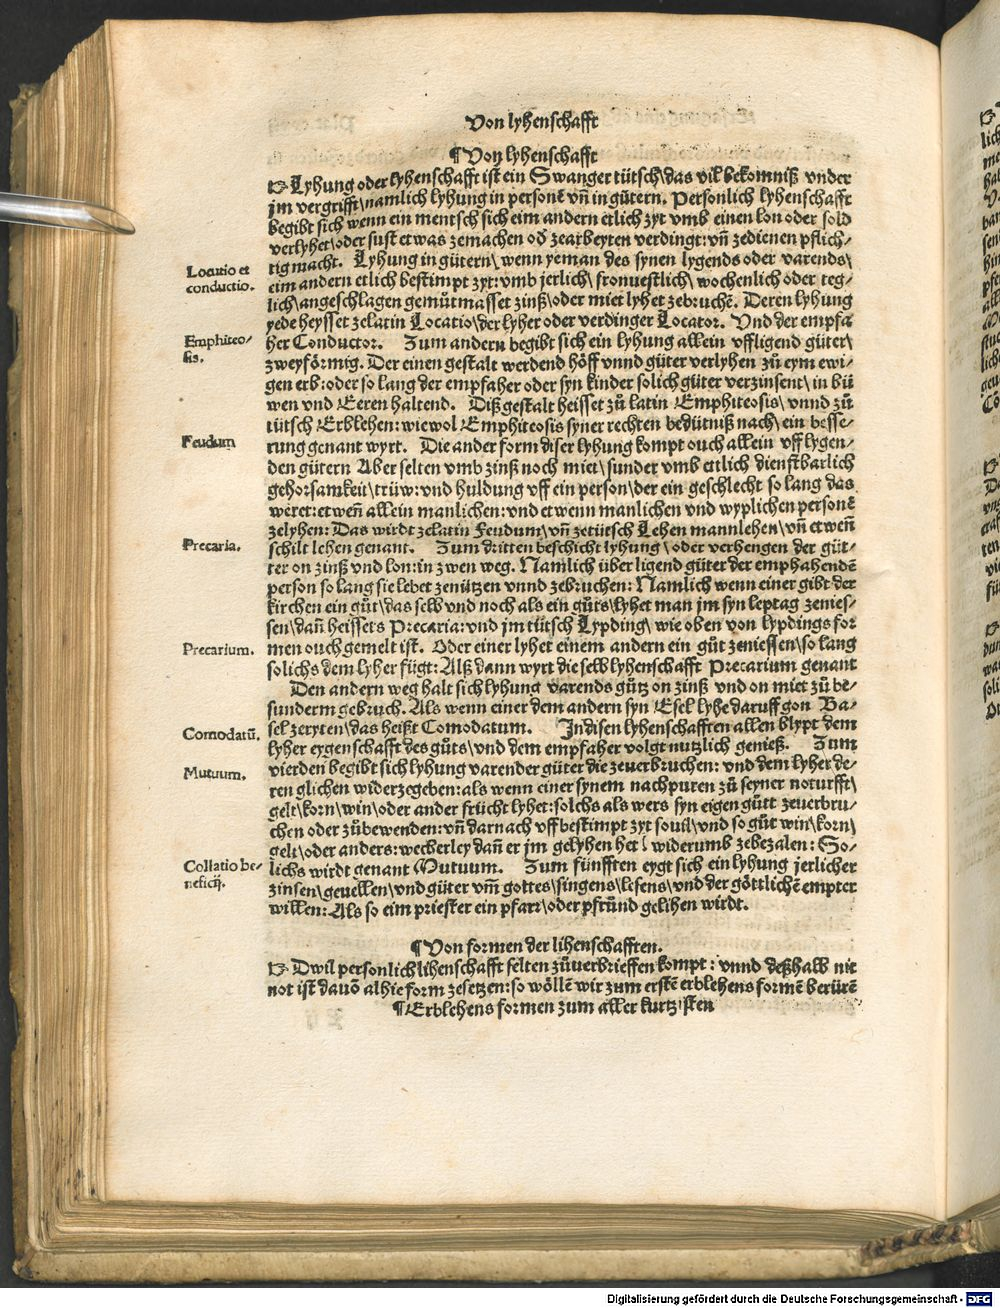 Von lyhenschafft
¶Von lyhenschafft
Lyhung oder lyhenschafft ist ein Swanger tütsch\das vil bekomniß vnder
jm vergrifft\namlich lyhung in personē vñ in gütern. Personlich lyhenschafft
begibt sich wenn ein mentsch sich eim andern etlich zyt vmb einen lon oder sold
verlyhet\oder sust etwas zemachen od̕ zearbeyten verdingt: vñ zedienen pflich⸗
tig macht. Lyhung in gütern\ wenn yeman des synen lygends oder varends\
Locatio et
conductio.
eim andern etlich bestimpt zyt: vmb jerlich\ fronuestlich\ wochenlich oder teg⸗
lich\angeschlagen gemůtmasset zinß\oder miet lyhet zebruchē. Deren lyhung
yede heysset zelatin Locatio\der lyher oder verdinger Locator. Vnd der empfa
Emphiteo⸗
sis.
her Conductor. Zum andern begibt sich ein lyhung allein vffligend güter\
zweyförmig. Der einen gestalt werdend höff vnnd güter verlyhen zů eym ewi⸗
gen erb: oder so lang der empfaher oder syn kinder solich güter verzinsent\ in bü
wen vnd Eeren haltend. Diß gestalt heisset zů latin Emphiteosis\ vnnd zů
tütsch Erblehen: wiewol Emphiteosis syner rechten bedütniß nach\ ein besse⸗
Feudum
rung genant wyrt. Die ander form diser lyhung kompt ouch allein vff lygen⸗
den gütern Aber selten vmb zinß noch miet\ sunder vmb ettlich dienstbarlich
gehorsamkeit\trüw: vnd huldung vff ein person\der ein geschlecht so lang das
weret: etweñ allein manlichen: vnd etwenn manlichen vnd wyplichen personē
zelyhen: Das wirdt zelatin Feudum\ vñ zetütsch Lehen mannlehen\ vñ etweñ
Precaria.
schilt lehen genant. Zum dritten beschicht lyhung\ oder verhengen der güt⸗
ter on zinß vnd lon: in zwen weg. Namlich über ligend güter der emphahendē
person so lang sie lebet zenützen vnnd zebruchen: Namlich wenn einer gibt der
kirchen ein gůt\das selb vnd noch als ein gůts\lyhet man jm syn leptag zenies⸗
sen\dañ heissets Precaria: vnd jm tütsch Lypding\ wie oben von lypdings for
Precarium.
men ouch gemelt ist. Oder einer lyhet einem andern ein gůt zeniessen\so lang
solichs dem lyher fügt: Alß dann wyrt die selb lyhenschafft Precarium genant
Den andern weg halt sich lyhung varends gůtz on zinß vnd on miet zů be⸗
sunderm gebruch. Als wenn einer dem andern syn Esel lyhe daruff gon Ba⸗
Comodatū.
sel zeryten\das heißt Comodatum. In disen lyhenschafften allen blypt dem
lyher eygenschafft des gůts\vnd dem empfaher volgt nutzlich genieß. Zum
Mutuum.
vierden begibt sich lyhung varender güter die zeuerbruchen: vnd dem lyher de⸗
ren glichen widerzegeben: als wenn einer synem nachpuren zů seyner noturfft\
gelt\korn\win\oder ander frücht lyhet: solchs als wers syn eigen gůtt zeuerbru⸗
chen oder zůbewenden: vñ darnach vff bestimpt zyt souil\vnd so gůt win\korn\
gelt\oder anders: wecherley dañ er jm gelyhen het\ widerumb zebezalen: So⸗
Collatio be⸗
neficij.
lichs wirdt genant Mutuum. Zum fünfften eygt sich ein lyhung jerlicher
zinsen\geuellen\vnd güter vm̄ gottes\singens\lesens\vnd der göttlichē empter
willen: Als so eim priester ein pfarr\oder pfrůnd gelihen wirdt.
¶Von formen der lihenschafften.
Dwil personlich lihenschafft selten zůuerbrieffen kompt: vnnd deßhalb nit
not ist dauō alhie form zesetzen: so wöllē wir zum erstē erblehens formē berürē
¶Erblehens formen zum aller kurtzisten
Digitalisierung gefördert durch die Deutsche Forschungsgemeinschaft - DFG